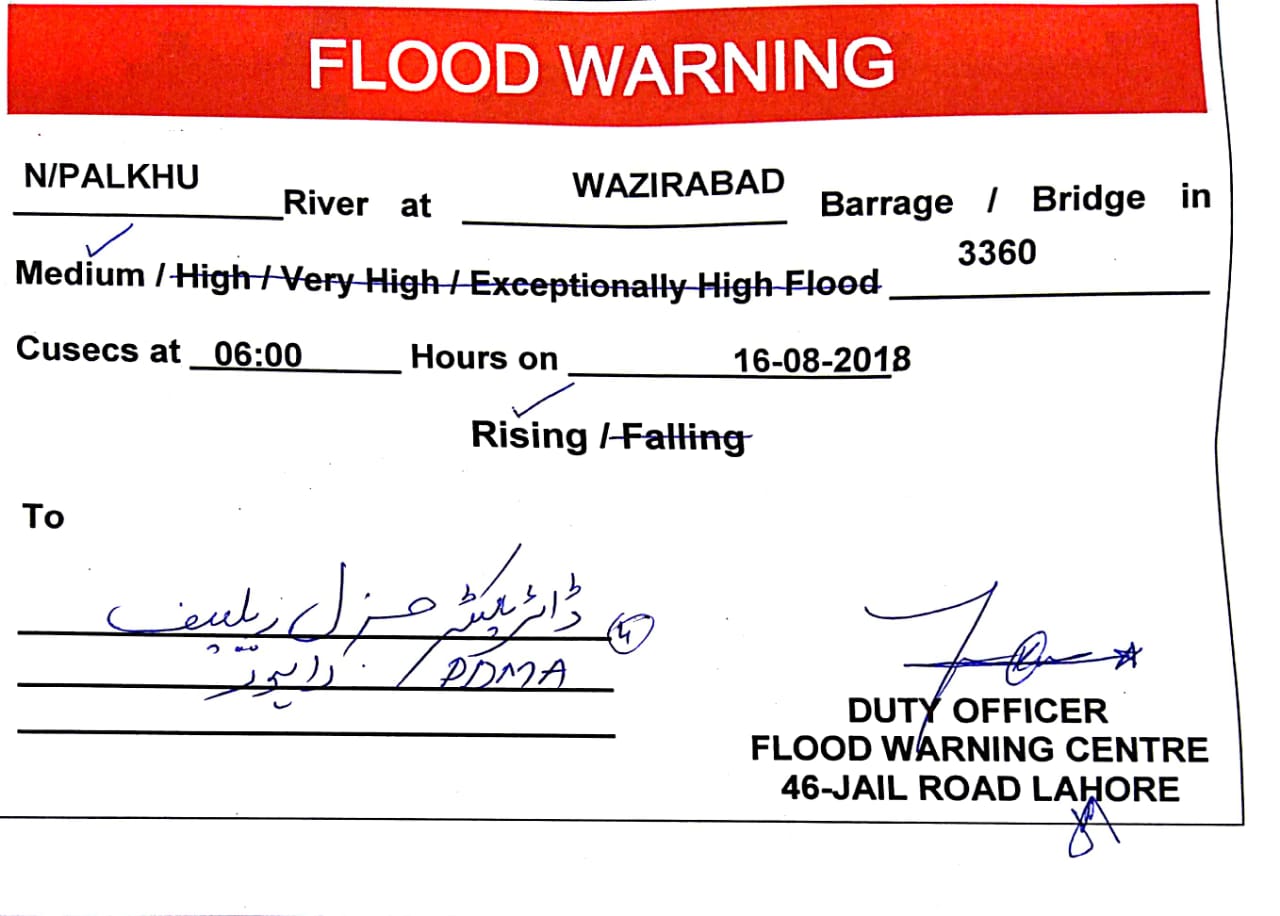 FLOOD WARNING
N/PALKHU River at WAZIRABAD Barrage / Bridge in
Medium / High / Very High / Exceptionally High Flood 3360
Cusecs at 06:00 Hours on 16-08-2018
Rising / Falling
To
ڈائریکٹر جنرل ریلیف
PDMA / لاہور
DUTY OFFICER
FLOOD WARNING CENTRE
46-JAIL ROAD LAHORE